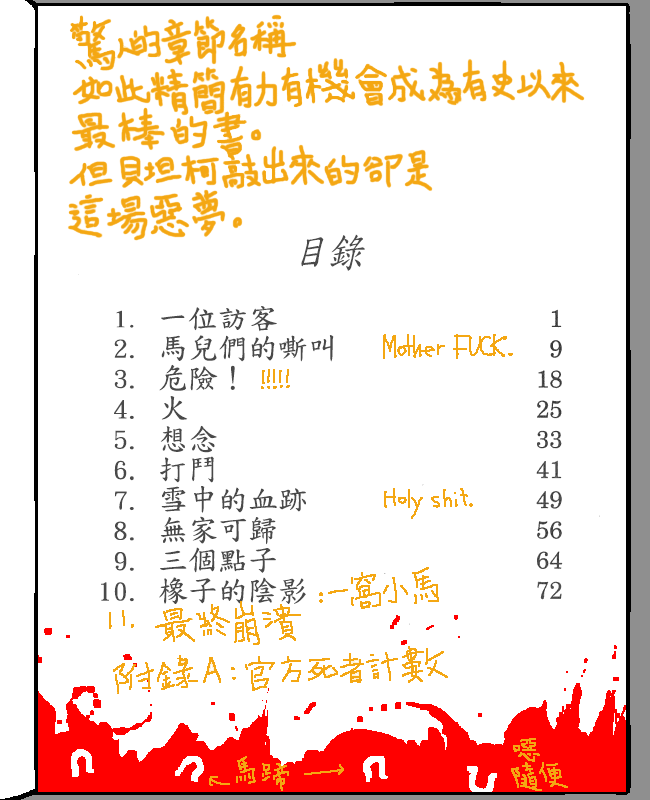 驚人的章節名稱
如此精簡有力有機會成為有史以來
最棒的書。
但貝坦柯敲出來的卻是
這場惡夢。
目錄
1. 一位訪客 1
2. 馬兒們的嘶叫 Mother FUCK. 9
3. 危險！ !!!!! 18
4. 火 25
5. 想念 33
6. 打鬥 41
7. 雪中的血跡 Holy shit. 49
8. 無家可歸 56
9. 三個點子 64
10. 橡子的陰影：一窩小馬 72
11. 最終崩潰
附錄A：官方死者計數
←馬蹄→
噁
隨便